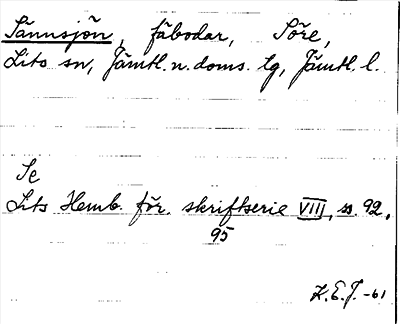 Sännsjön, fäbodar, Söre,
Lits sn, Jämtl. n. doms. lg, Jämtl. l.
Se
Lits Hemb. för. skriftserie VIII, ss. 92,
95
K.E.J. -61